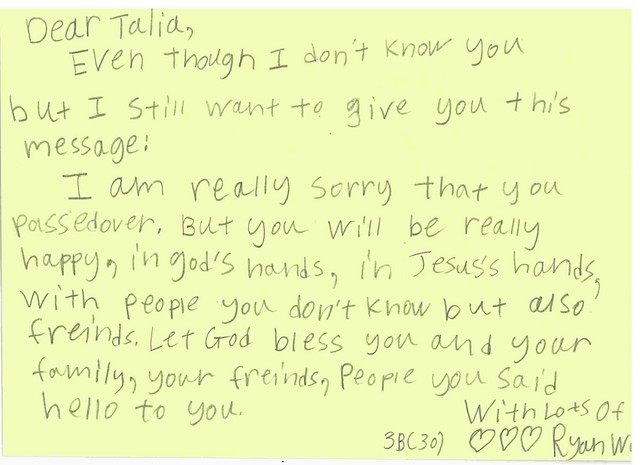 Dear Talia,
Even though I don't know you
but I still want to give you this
message:
I am really sorry that you
passedover. But you will be really
happy, in god's hands, in Jesus's hands,
with people you don't know but also
freinds. Let God bless you and your
family, your freinds, People you said
hello to you.
With Lots Of
3B(30) ♡♡♡ Ryan W